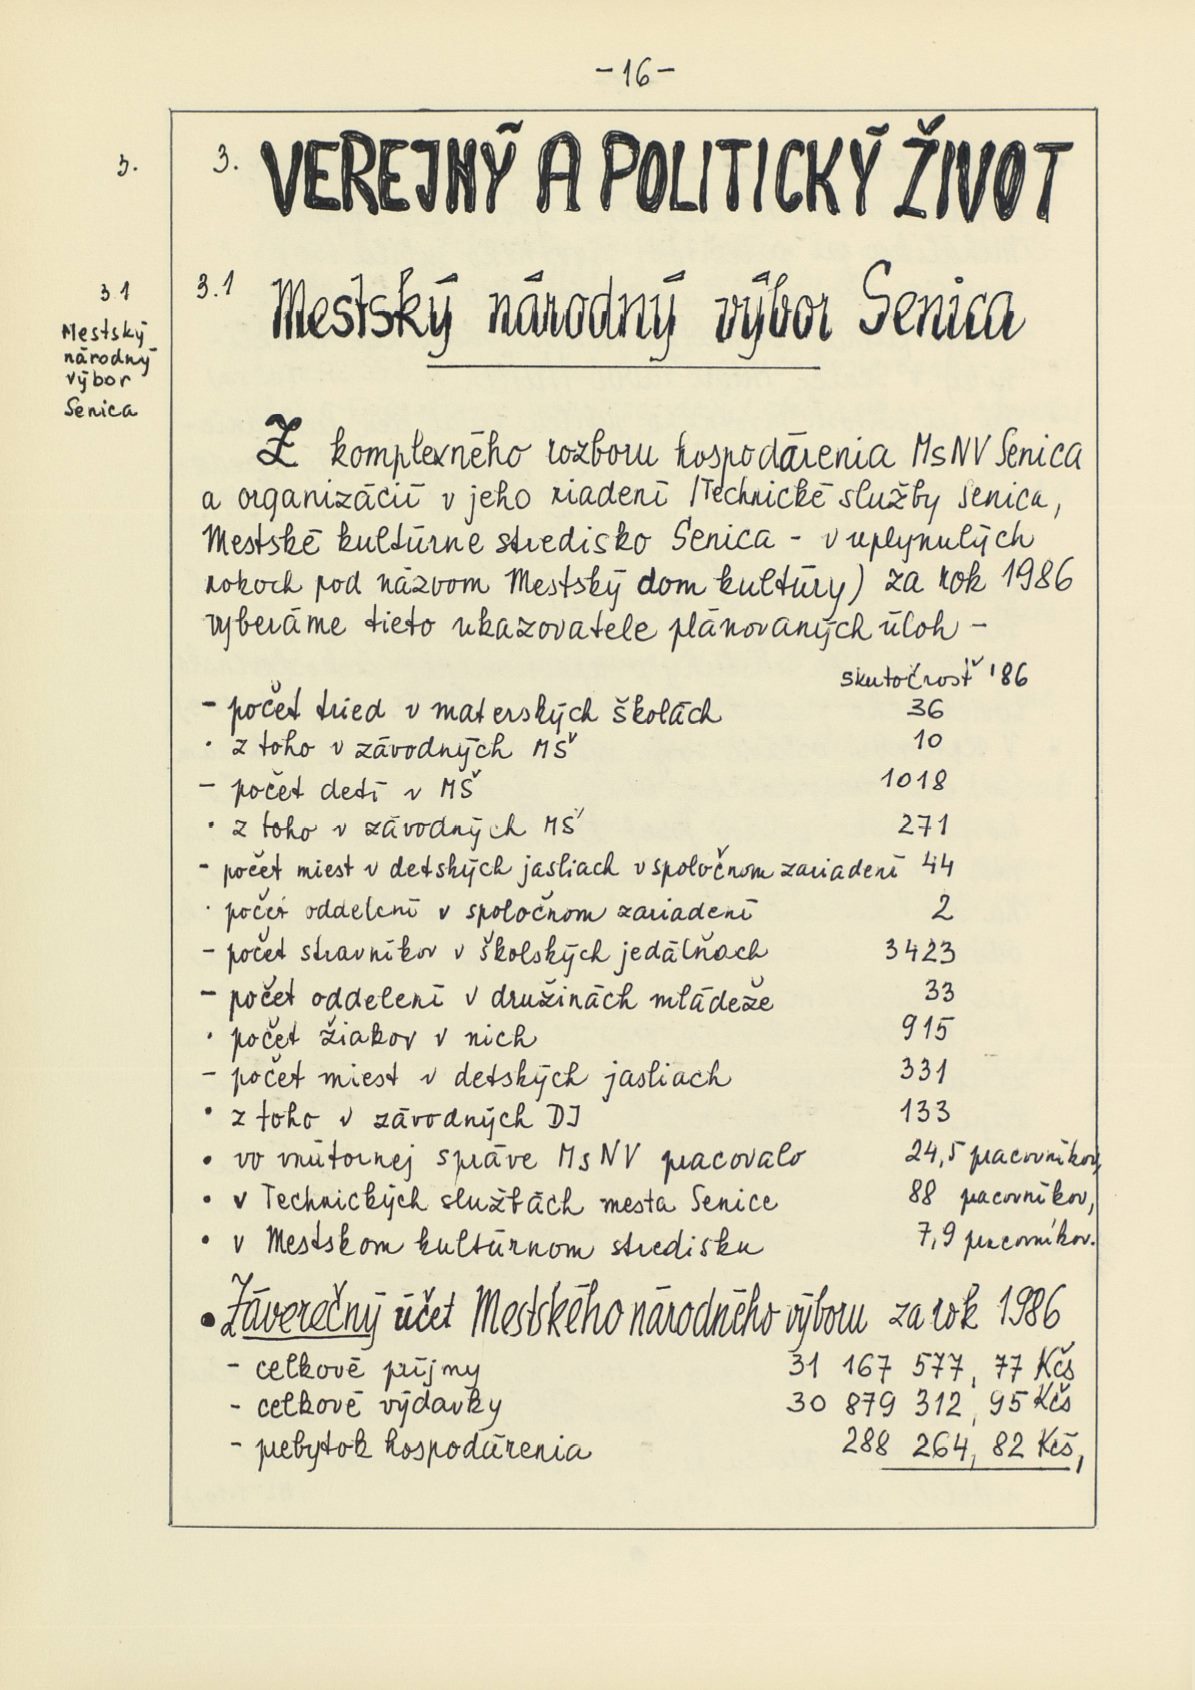 -16-
3.
3. VEREJNÝ A POLITICKÝ ŽIVOT
3.1
Mestský
národný
výbor
Senica
3.1 Mestský národný výbor Senica
Z komplexného rozboru hospodárenia MsNV Senica
a organizácií v jeho riadení /Technické služby Senica,
Mestské kultúrne stredisko Senica - v uplynulých
rokoch pod názvom Mestský dom kultúry) za rok 1986
vyberáme tieto ukazovatele plánovaných úloh -
skutočnosť '86
- počet tried v materských školách 36
· z toho v závodných MŠ 10
- počet detí v MŠ 1018
· z toho v závodných MŠ 271
- počet miest v detských jasliach v spoločnom zariadení 44
· počet oddelení v spoločnom zariadení 2
- počet stravníkov v školských jedálňach 3423
- počet oddelení v družinách mládeže 33
· počet žiakov v nich 915
- počet miest v detských jasliach 331
• z toho v závodných DJ 133
• vo vnútornej správe MsNV pracovalo 24,5 pracovníkov,
• v Technických službách mesta Senice 88 pracovníkov,
• v Mestskom kultúrnom stredisku 7,9 pracovníkov.
• Záverečný účet Mestského národného výboru za rok 1986
- celkové príjmy 31 167 577, 77 Kčs
- celkové výdavky 30 879 312, 95 Kčs
- prebytok hospodárenia 288 264, 82 Kčs,